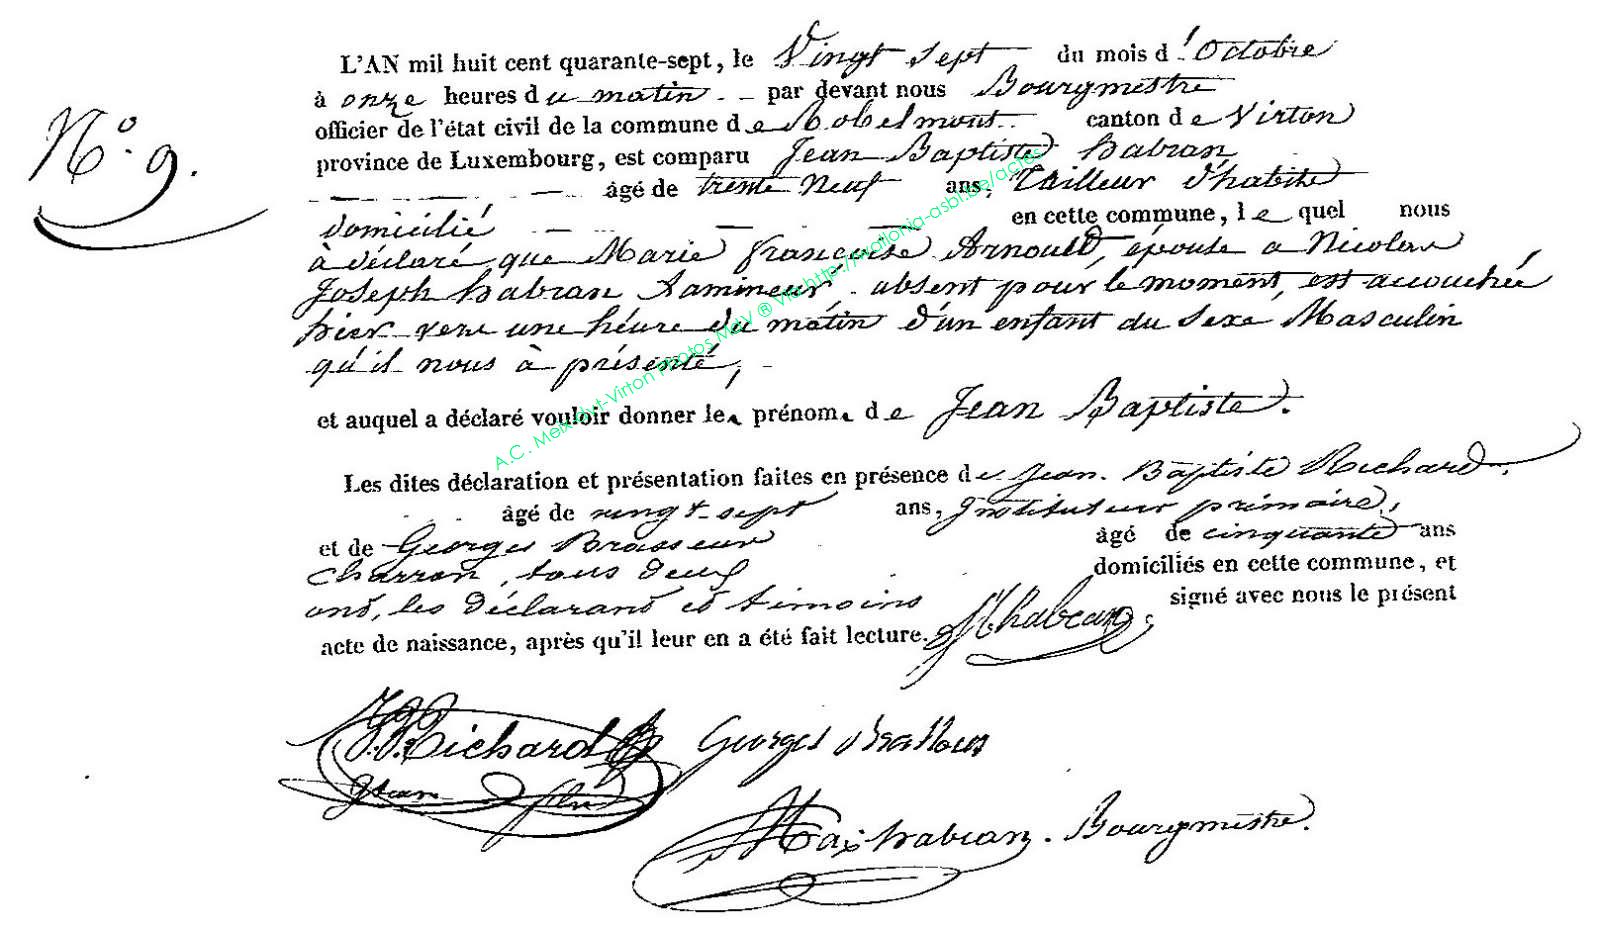 L'AN mil huit cent quarante-sept, le Vingt sept du mois d'Octobre
à onze heures du matin par devant nous Bourgmestre
officier de l'état civil de la commune de Robelmont canton de Virton
N° 9.
province de Luxembourg, est comparu Jean Baptiste habran
âgé de trente Neuf ans, Tailleur d'habits
domicilié en cette commune, lequel nous
à déclaré que Marie françoise Arnould, épouse a Nicolas
Joseph habran absent pour le moment, est accouchée
hier vers une héure du matin d'un enfant du Sexe Masculin
qu'il nous à présenté,
et auquel a déclaré vouloir donner les prénoms de Jean Baptiste.
Les dites déclaration et présentation faites en présence de Jean Baptiste Richard
âgé de vingt-sept ans, Instituteur primaire,
et de Georges Brasseur âgé de cinquante ans
charron, tous deux domiciliés en cette commune, et
ont, les déclarant et témoins signé avec nous le présent
acte de naissance, après qu'il leur en a été fait lecture. habran
J.B. Richard Georges brasseur
habran. Bourgmestre.
A.C. Meix-dvt-Virton Photos MdV ® Via http://wallonia-asbl.be/actes